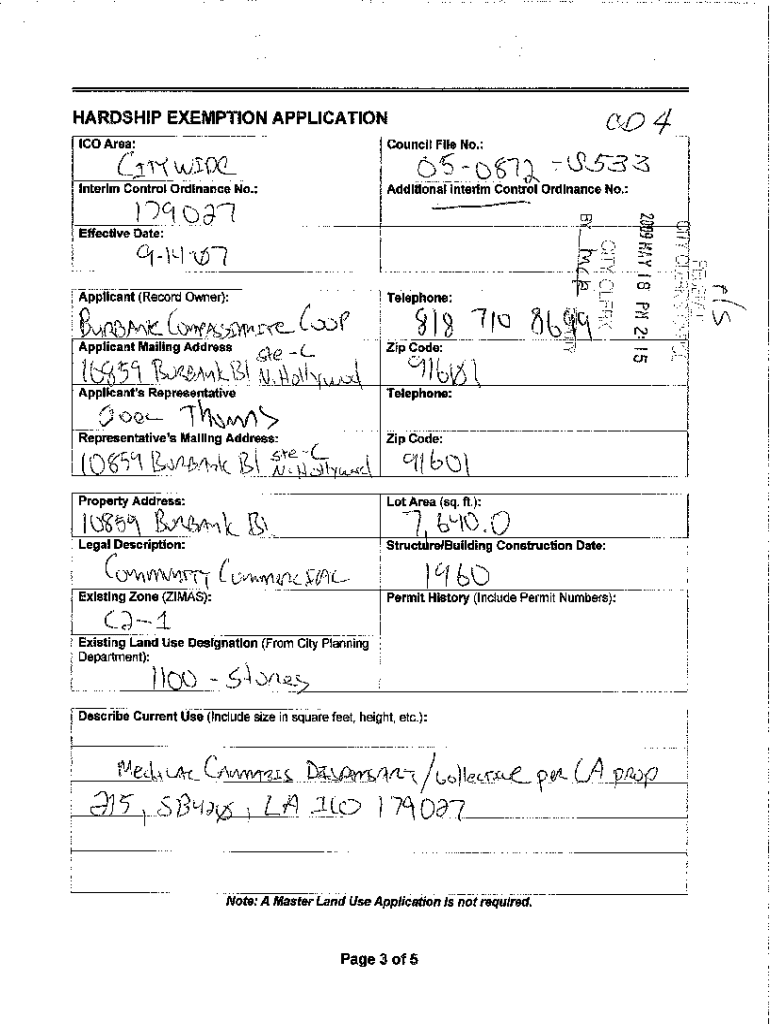 HARDSHIP EXEMPTION APPLICATION
CD 4
ICO Area:
CITYWIDE
Council File No.:
05-0872-S533
Interim Control Ordinance No.:
179027
Additional Interim Control Ordinance No.:
Effective Date:
9-14-07
2009 MAY 18 PM 2:15
CITY CLERK
BY
Applicant (Record Owner):
BURBANK COMPASSIONATE COOP
Telephone:
818 710 8699
Applicant Mailing Address
ste-C
10859 BURBANK Bl N. Hollywood
Zip Code:
91601
Applicant's Representative
Joel Thomas
Telephone:
Representative's Mailing Address:
10859 BURBANK Bl ste-C N. Hollywood
Zip Code:
91601
Property Address:
10859 BURBANK Bl.
Lot Area (sq. ft.):
7,640.0
Legal Description:
COMMUNITY COMMERCIAL
Structure/Building Construction Date:
1960
Existing Zone (ZIMAS):
C2-1
Permit History (Include Permit Numbers):
Existing Land Use Designation (From City Planning
Department):
1100 - Stores
Describe Current Use (Include size in square feet, height, etc.):
Medical Cannabis Dispensary/Collective per CA prop
215, SB420, LA ICO 179027
Note: A Master Land Use Application is not required.
Page 3 of 5